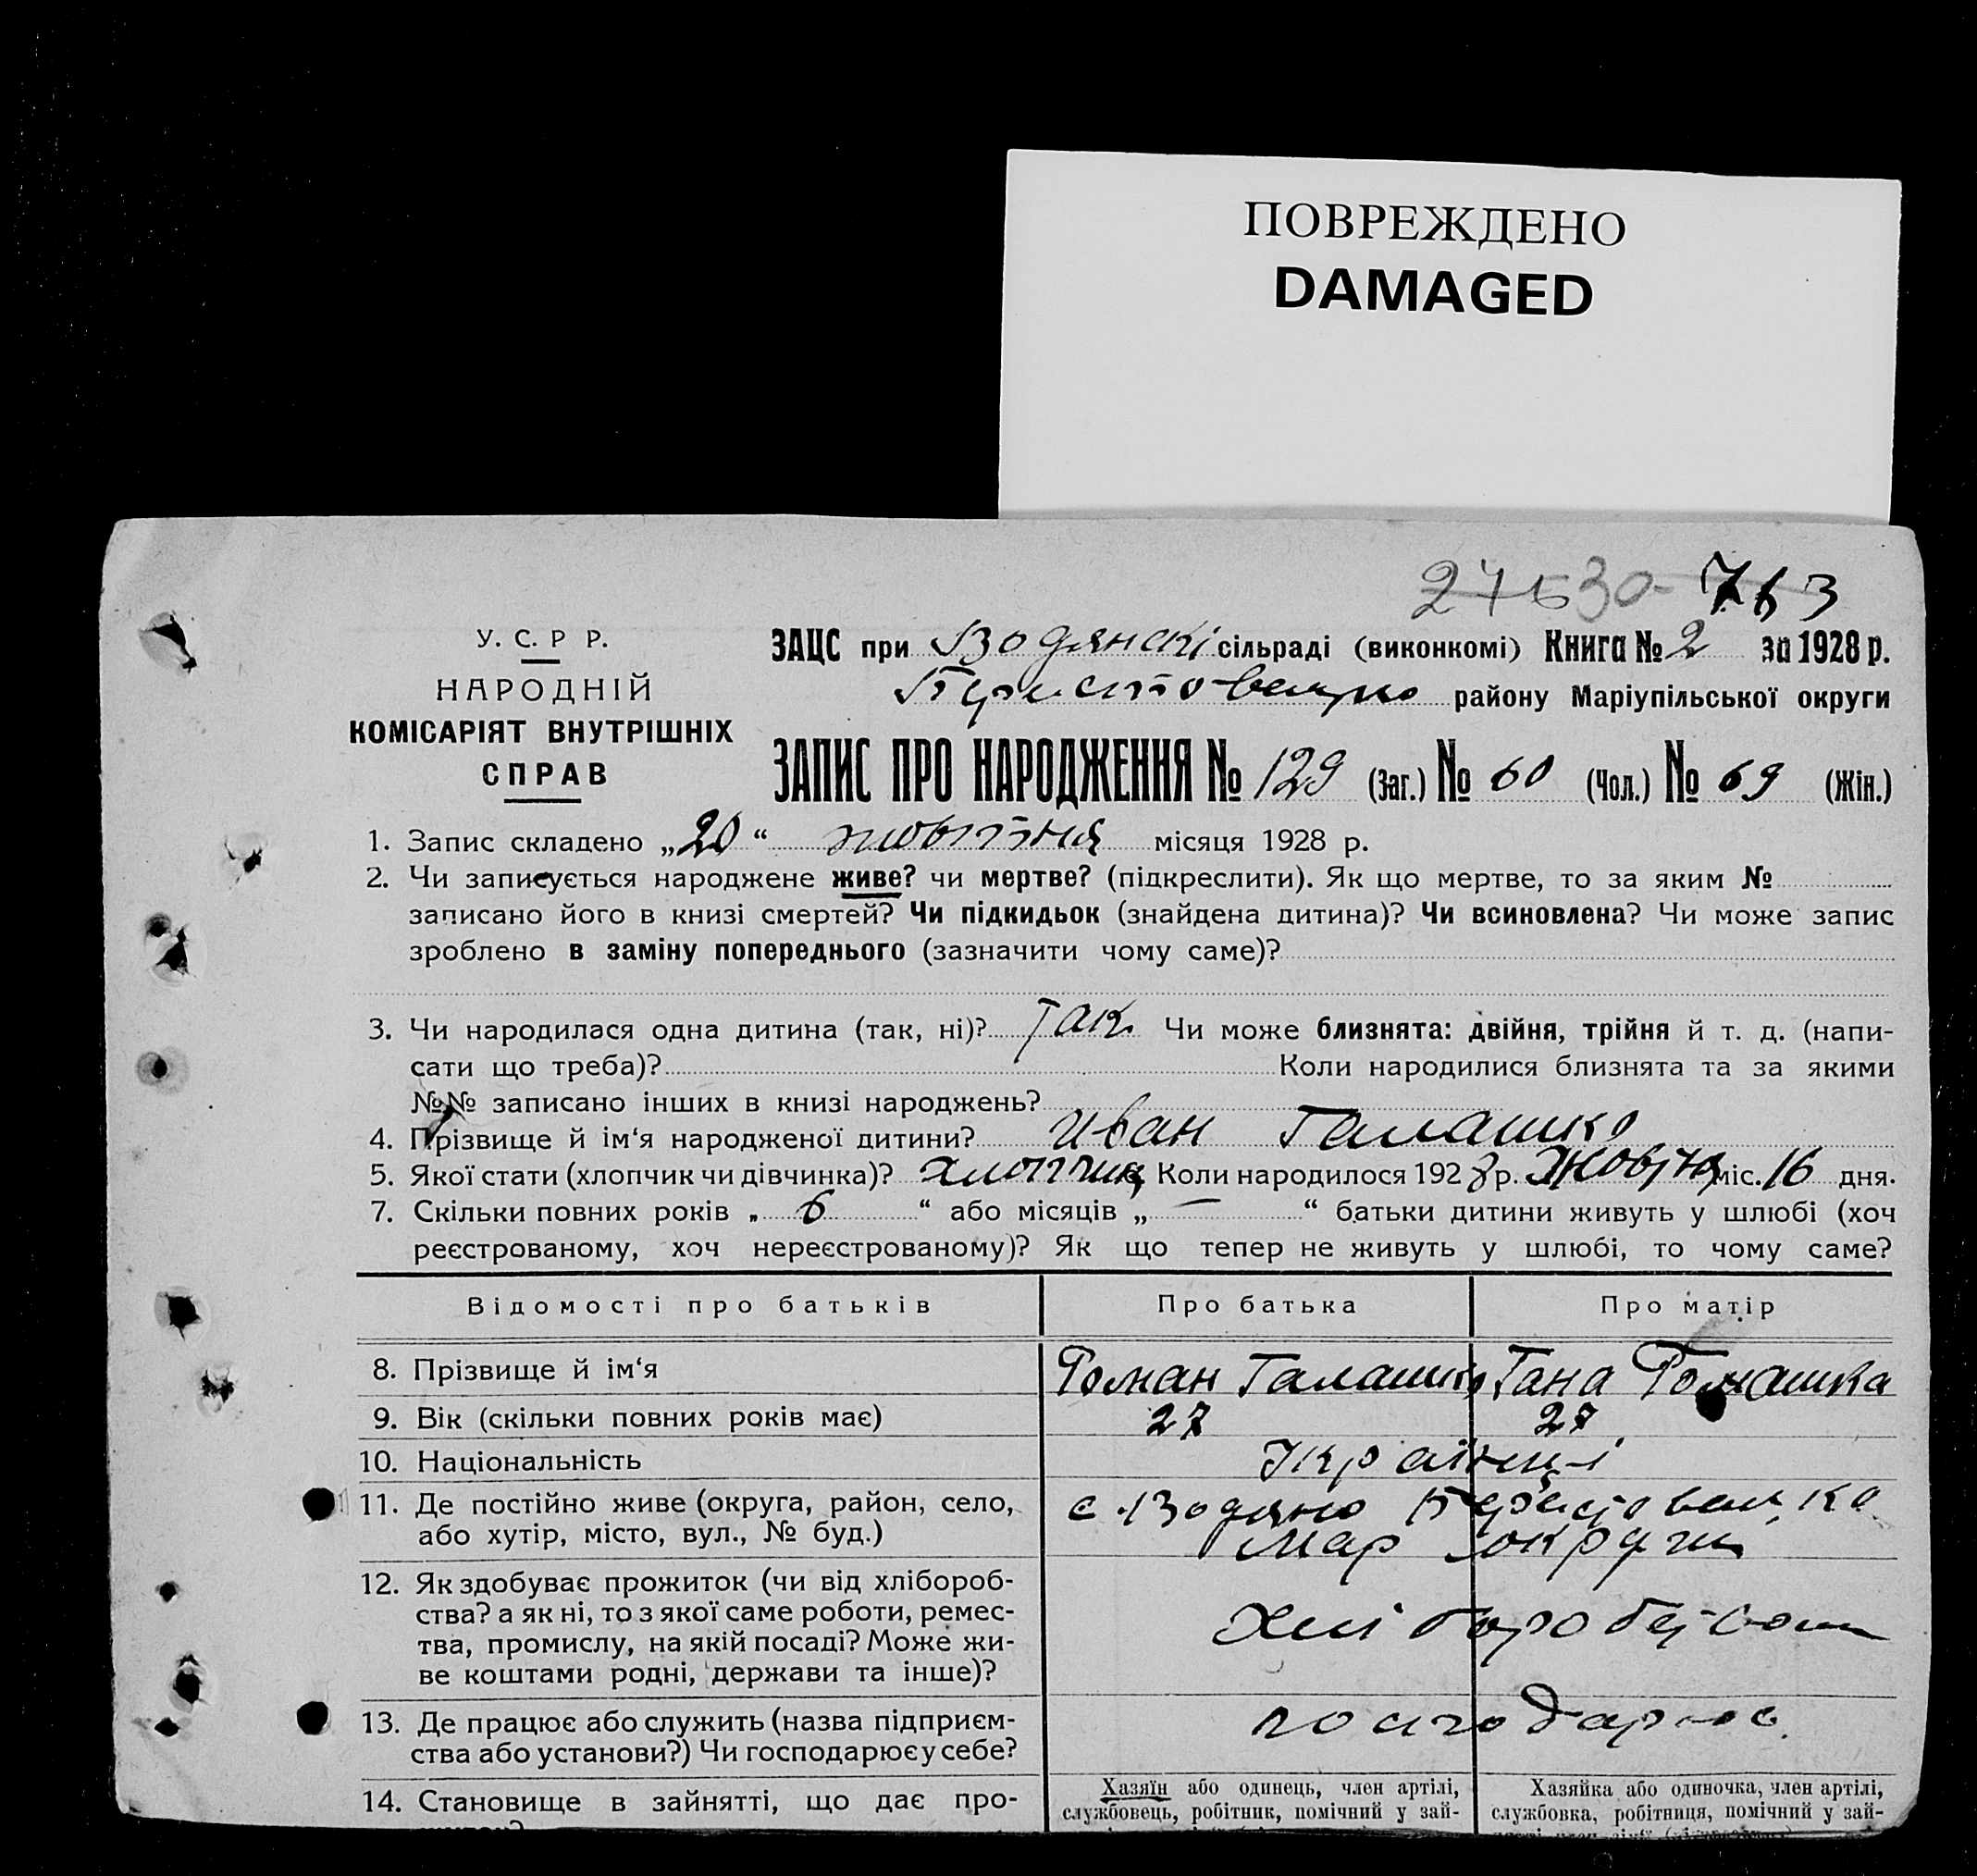 ПОВРЕЖДЕНО
DAMAGED
27530 763
У. С. Р Р.
НАРОДНІЙ
КОМІСАРІЯТ ВНУТРІШНІХ
СПРАВ
ЗАЦС при Водянскі сільраді (виконкомі) Книга № 2 за 1928 р.
району Маріупільської округи
ЗАПИС ПРО НАРОДЖЕННЯ № 129 (Заг.) № 60 (Чол.) № 69 (Жін.)
1. Запис складено „20“ жовтня місяця 1928 р.
2. Чи записується народжене живе? чи мертве? (підкреслити). Як що мертве, то за яким №
записано його в книзі смертей? Чи підкидьок (знайдена дитина)? Чи всиновлена? Чи може запис
зроблено в заміну попереднього (зазначити чому саме)?
3. Чи народилася одна дитина (так, ні)? Так Чи може близнята: двійня, трійня й т. д. (напи-
сати що треба)? Коли народилися близнята та за якими
№№ записано інших в книзі народжень?
4. Прізвище й ім‘я народженої дитини? Иван Галашко
5. Якої стати (хлопчик чи дівчинка)? хлопчик Коли народилося 1928 р. Жовтня міс. 16 дня.
7. Скільки повних років „ 6 “ або місяців „ — “ батьки дитини живуть у шлюбі (хоч
реєстрованому, хоч нереєстрованому)? Як що тепер не живуть у шлюбі, то чому саме?
Відомості про батьків Про батька Про матір
8. Прізвище й ім‘я Роман Галашко Гана Галашка
9. Вік (скільки повних років має) 27 27
10. Національність Українці
11. Де постійно живе (округа, район, село, с Водяно
або хутір, місто, вул., № буд.) Мар округи
12. Як здобуває прожиток (чи від хлібороб-
ства? а як ні, то з якої саме роботи, ремес-
тва, промислу, на якій посаді? Може жи-
ве коштами родні, держави та інше)?
13. Де працює або служить (назва підприєм-
ства або установи?) Чи господарює у себе?
14. Становище в зайнятті, що дає про-
Хазяїн або одинець, член артілі,
службовець, робітник, помічний у зай-
Хазяйка або одиночка, член артілі,
службовка, робітниця, помічний у зай-